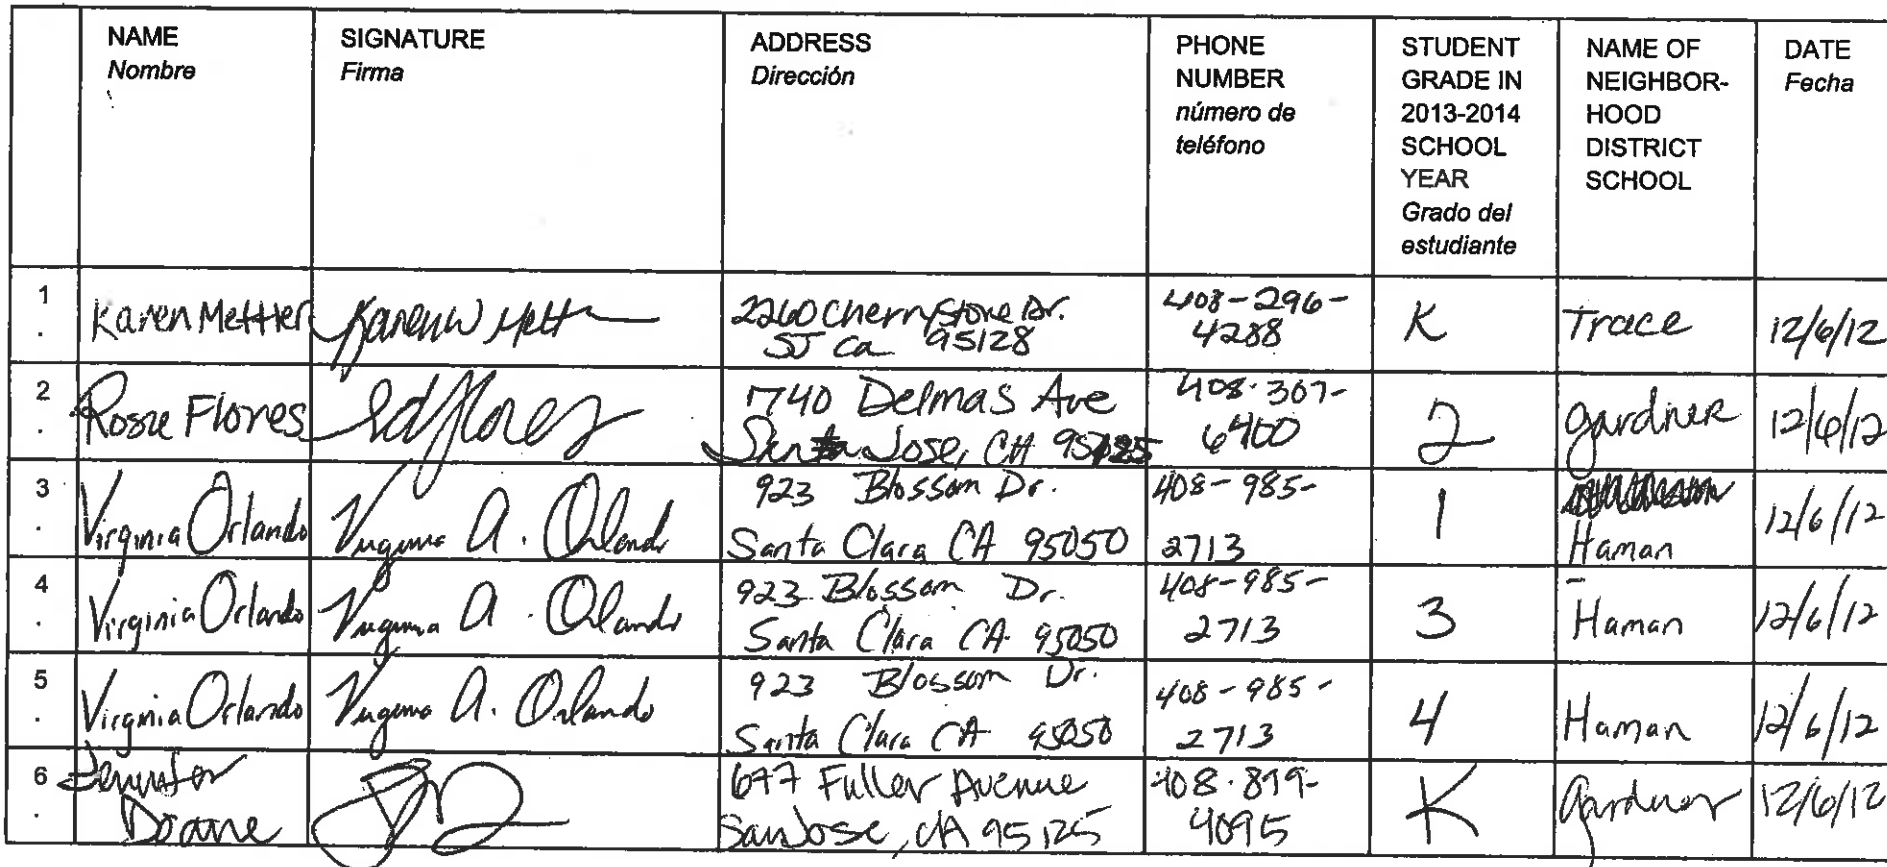 NAME
Nombre
SIGNATURE
Firma
ADDRESS
Dirección
PHONE
NUMBER
número de
teléfono
STUDENT
GRADE IN
2013-2014
SCHOOL
YEAR
Grado del
estudiante
NAME OF
NEIGHBOR-
HOOD
DISTRICT
SCHOOL
DATE
Fecha
1
.
Karen Mettler
2260 Cherrystone Dr.
SJ Ca 95128
408-296-
4288
K
Trace
12/6/12
2
.
Rosie Flores
1740 Delmas Ave
San Jose, CA 95125
408-307-
6400
2
gardner
12/6/12
3
.
Virginia Orlando
Virginia A. Orlando
923 Blossom Dr.
Santa Clara CA 95050
408-985-
2713
1
Haman
12/6/12
4
.
Virginia Orlando
Virginia A. Orlando
923 Blossom Dr.
Santa Clara CA 95050
408-985-
2713
3
Haman
12/6/12
5
.
Virginia Orlando
Virginia A. Orlando
923 Blossom Dr.
Santa Clara CA 95050
408-985-
2713
4
Haman
12/6/12
6
.
Jennifer
Doane
677 Fuller Avenue
San Jose, CA 95125
4095
K
Gardner
12/6/12